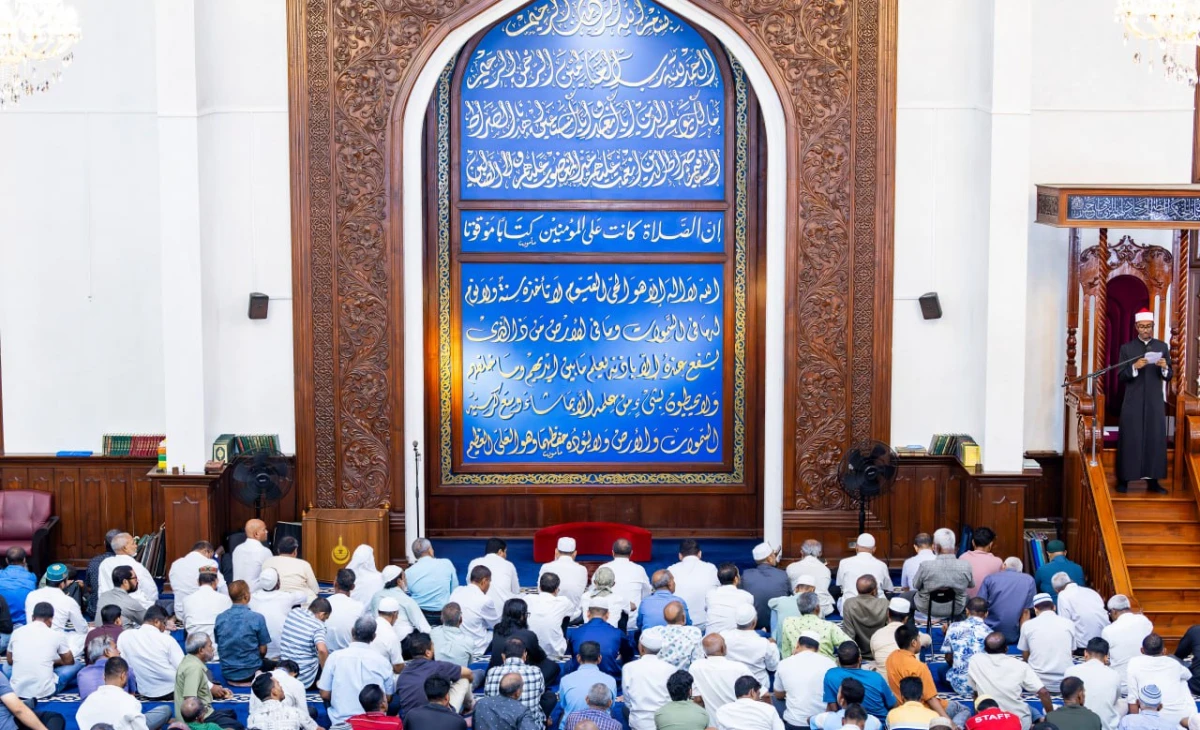 بسم الله الرحمن الرحيم
الحمد لله رب العالمين الرحمن الرحيم
مالك يوم الدين إياك نعبد وإياك نستعين اهدنا الصراط
المستقيم صراط الذين أنعمت عليهم غير المغضوب عليهم ولا الضالين
إن الصلاة كانت على المؤمنين كتابا موقوتا
الله لا إله إلا هو الحي القيوم لا تأخذه سنة ولا نوم
له ما في السموات وما في الأرض من ذا الذي
يشفع عنده إلا بإذنه يعلم ما بين أيديهم وما خلفهم
ولا يحيطون بشيء من علمه إلا بما شاء وسع كرسيه
السموات والأرض ولا يؤده حفظهما وهو العلي العظيم
STAFF